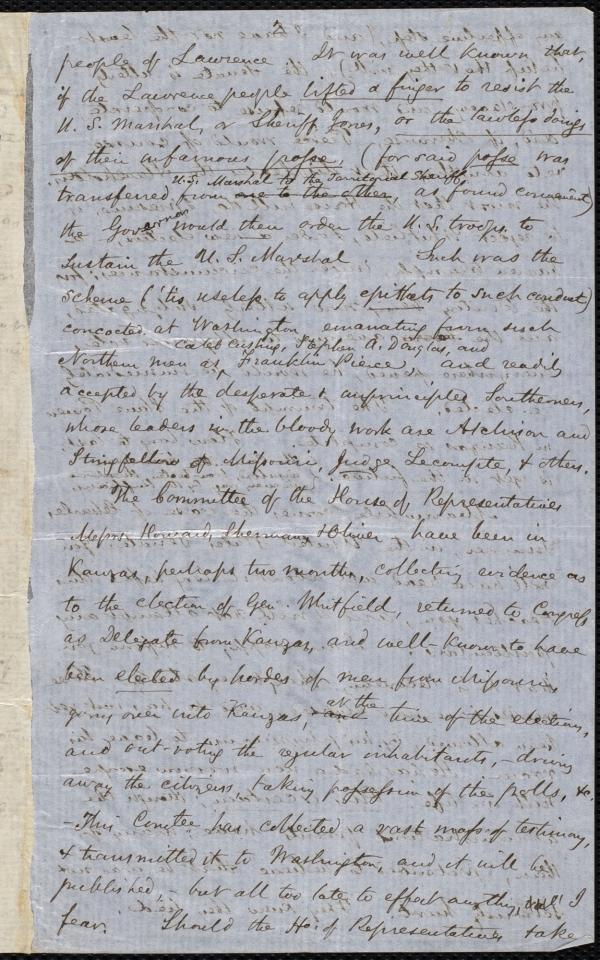 3
people of Lawrence It was well known that,
if the Lawrence people lifted a finger to resist the
U. S. Marshal, or Sheriff Jones, or the lawless doings
of their infamous posse, (for said posse was
U.S. Marshal to the Territorial Sheriff,
transferred from one to the other, as found convenient)
the Governor would then order the U.S. troops to
sustain the U. S. Marshal. Such was the
scheme ('tis useless to apply epithets to such conduct)
concocted at Washington, emanating from such
Caleb Cushing, Stephen A. Douglas, and
Northern men as Franklin Pierce, and readily
accepted by the desperate & unprincipled Southerners,
whose leaders in the bloody work are Atchison and
Stringfellow of Missouri, Judge Lecompte, & others.
The Committee of the House of Representatives
- Messrs Howard, Sherman & Oliver - have been in
Kanzas, perhaps two months, collecting evidence as
to the election of Gen. Whitfield, returned to Congress
as Delegate from Kanzas, and well-known to have
been elected by hordes of men from Missouri
at the
going over into Kanzas, and time of the election,
and out-voting the regular inhabitants, - driving
away the citizens, taking possession of the polls, &c.
- This Comtee. has collected a vast mass of testimony,
& transmitted it to Washington, and it will be
published, - but all too late to effect anything, I
fear. Should the Ho. of Representatives take